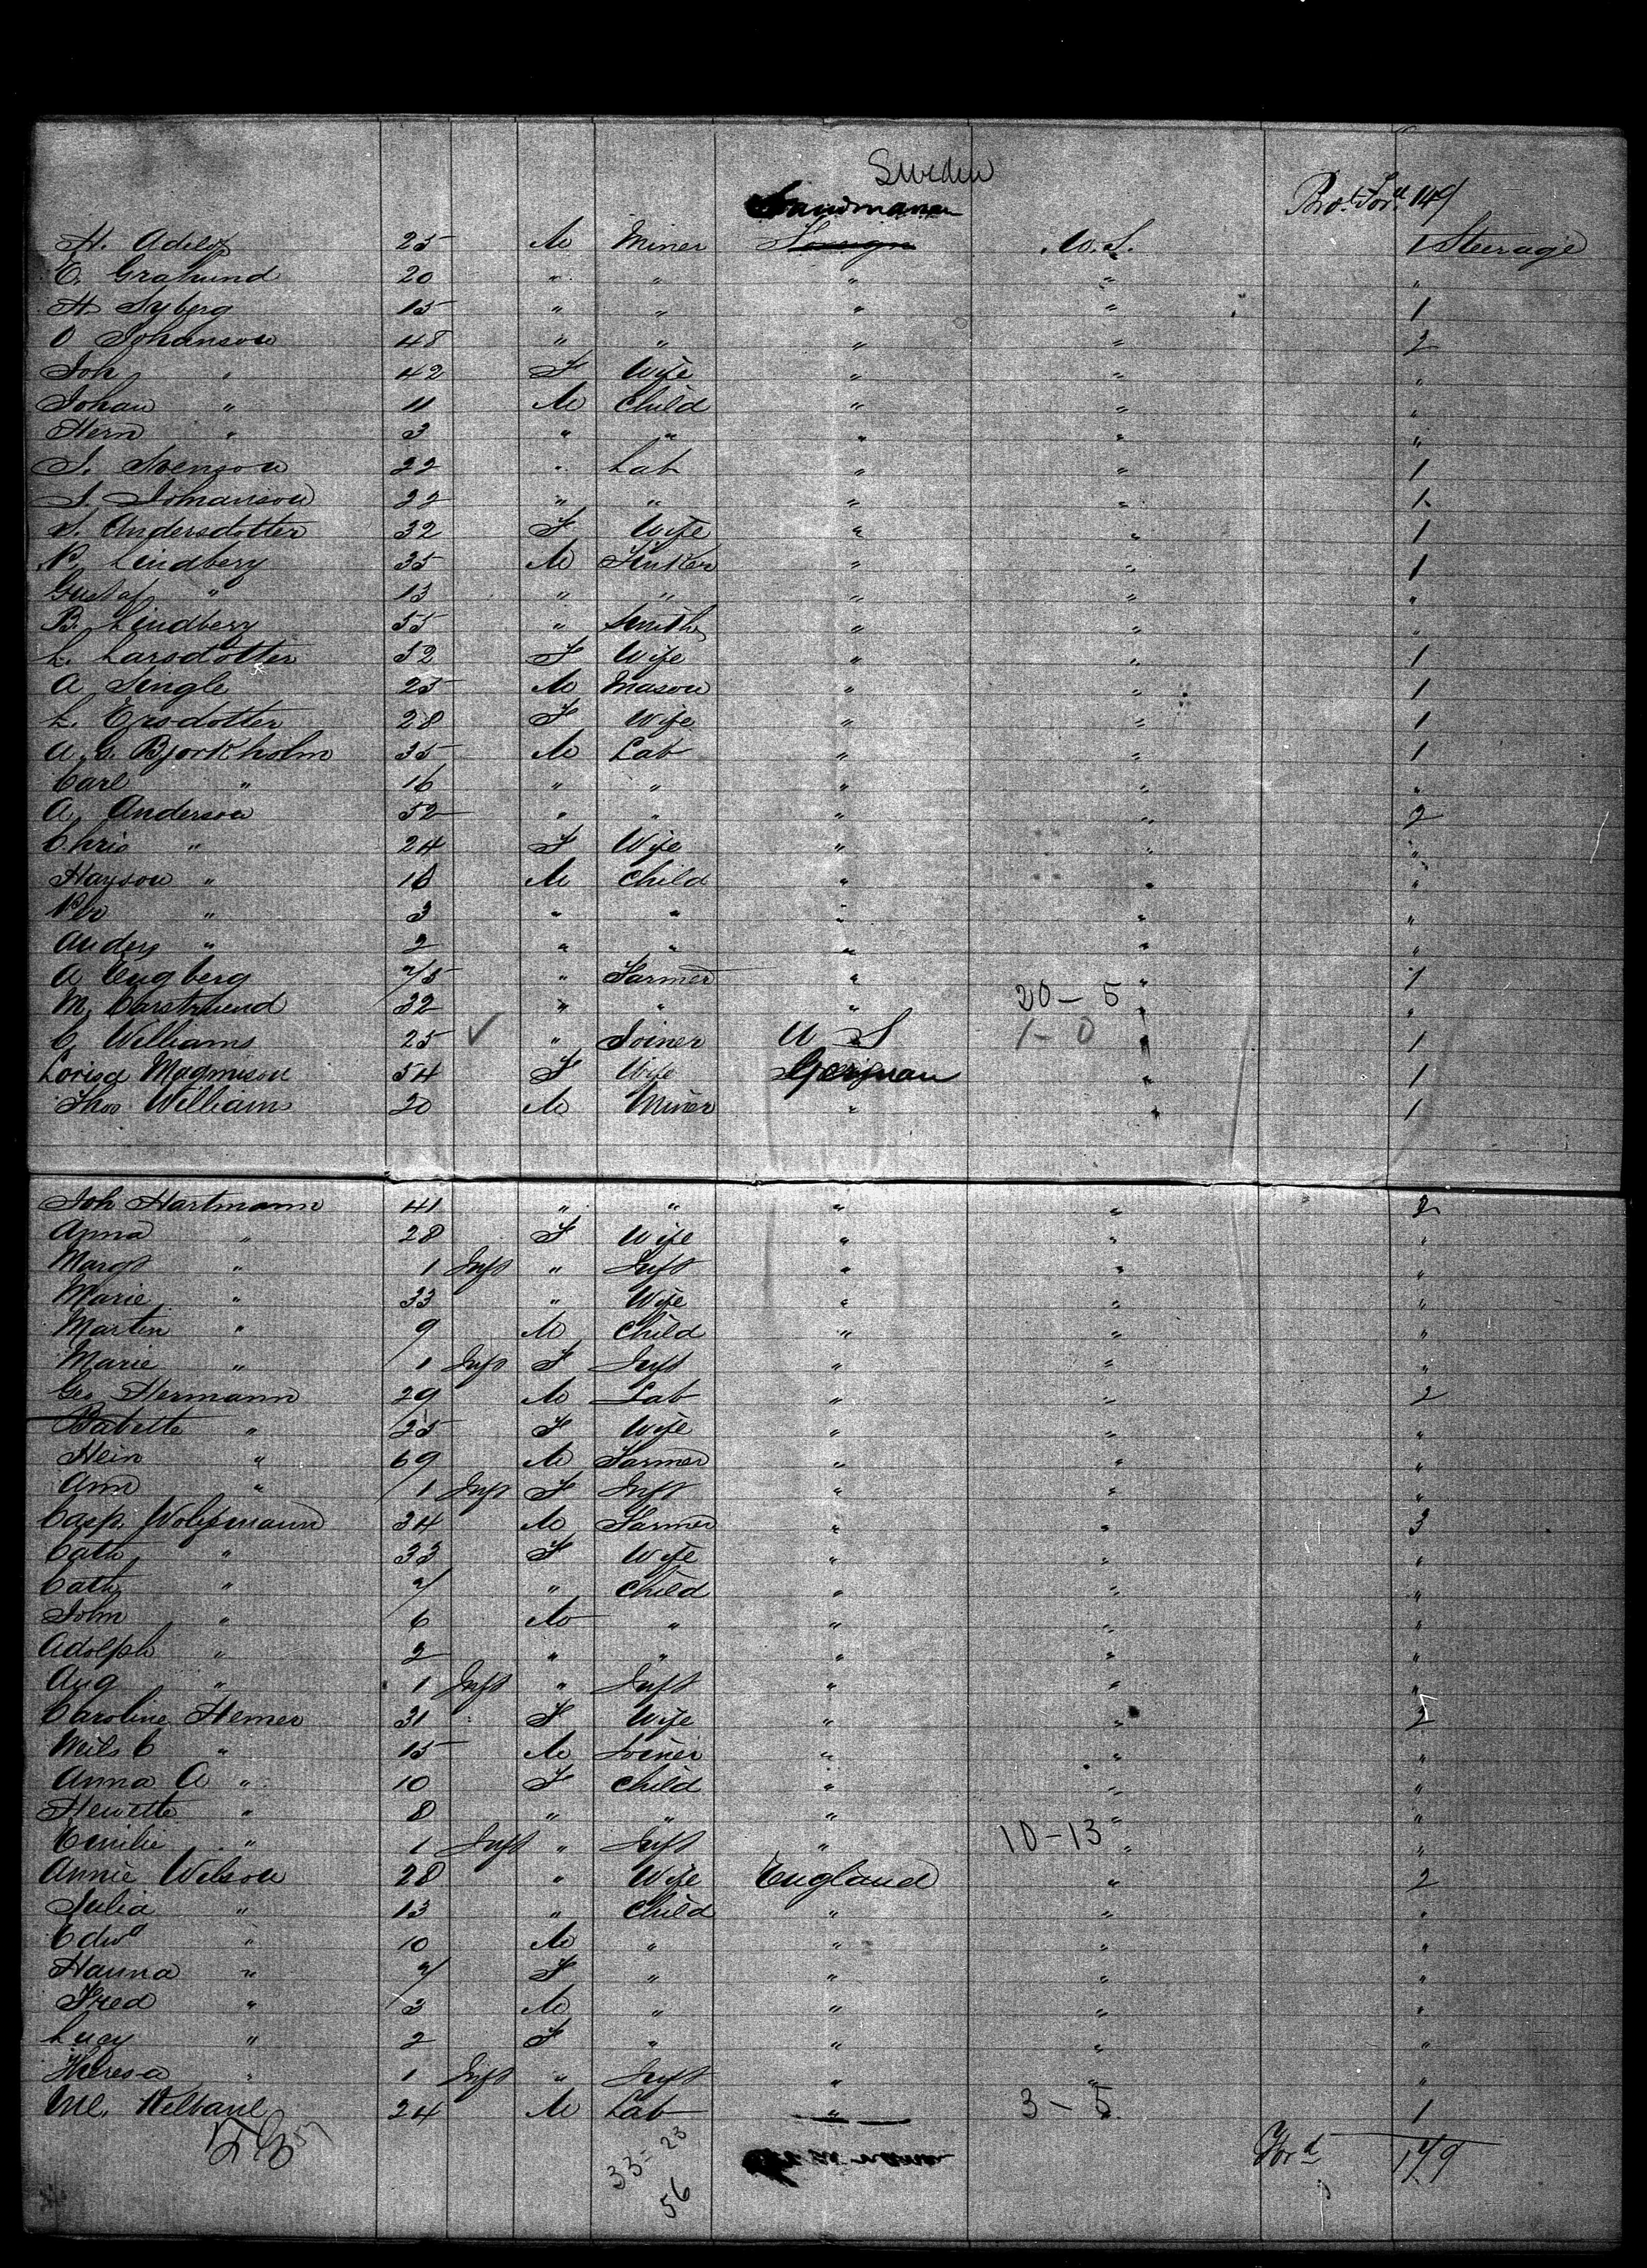 Sweden
Bro.t For.d 149
H. Adelof 25 M Miner Foreign U.S. 1 Steerage
C. Grahund 20 " " " " "
H Syberg 15 " " " " 1
O Johanson 48 " " " " 2
Joh " 42 F Wife " " "
Johan " 11 M Child " " "
Hern " 3 " " " " "
S. Svenson 22 " Lab " " 1
S. Johanson 22 " " " " 1
S. Andersdotter 32 F Wife " " 1
P. Lindberg 35 M Tinker " " 1
Gustaf " 13 " " " " "
B. Lindberg 55 " Smith " " "
L. Larsdotter 52 F Wife " " 1
A Single 25 M Mason " " 1
L. Ersdotter 28 F Wife " " 1
A. G. Bjorkholm 35 M Lab " " 1
Carl " 16 " " " " "
A. Anderson 52 " " " " 2
Chris " 24 F Wife " " "
Hayson " 16 M Child " " "
Per " 3 " " " " "
Anders " 2 " " " " "
A Engberg 75 " Farmer " " 1
M. 32 " " " 20-5 " "
C. Williams 25 ✓ " Joiner U S 1-0 " 1
Lovisa Magnuson 54 F Wife German " 1
Thos William 20 M Miner " " 1
Joh Hartmann 41 " " " " 2
Anna " 28 F Wife " " "
Margt " 1 Inft " Inft " " "
Marie " 33 " Wife " " "
Martin " 9 M Child " " "
Marie " 1 Inft F Inft " " "
Geo Hermann 29 M Lab " " 2
Babette " 25 F Wife " " "
Hein " 69 M Farmer " " "
Ann " 1 Inft F Inft " " "
Casp. Wolfmann 34 M Farmer " " 3
Cath " 33 F Wife " " "
Cath " 7 " Child " " "
John " 6 M " " " "
Adolph " 2 " " " " "
Aug " 1 Inft " Inft " " "
Caroline Hemer 31 F Wife " " 2
Neils C " 15 M Joiner " " "
Anna A " 10 F Child " " "
Hewette " 8 " " " " "
Emilie " 1 Inft " Inft " 10-13 " "
Annie Wilson 28 " Wife England " 2
Julia " 13 " Child " " "
Edwd " 10 M " " " "
Hanna " 7 F " " " "
Fred " 3 M " " " "
Lucy " 2 F " " " "
Theresa " 1 Inft " Inft " " "
24 M Lab " 3-5 1
33-23
56
For.d 179